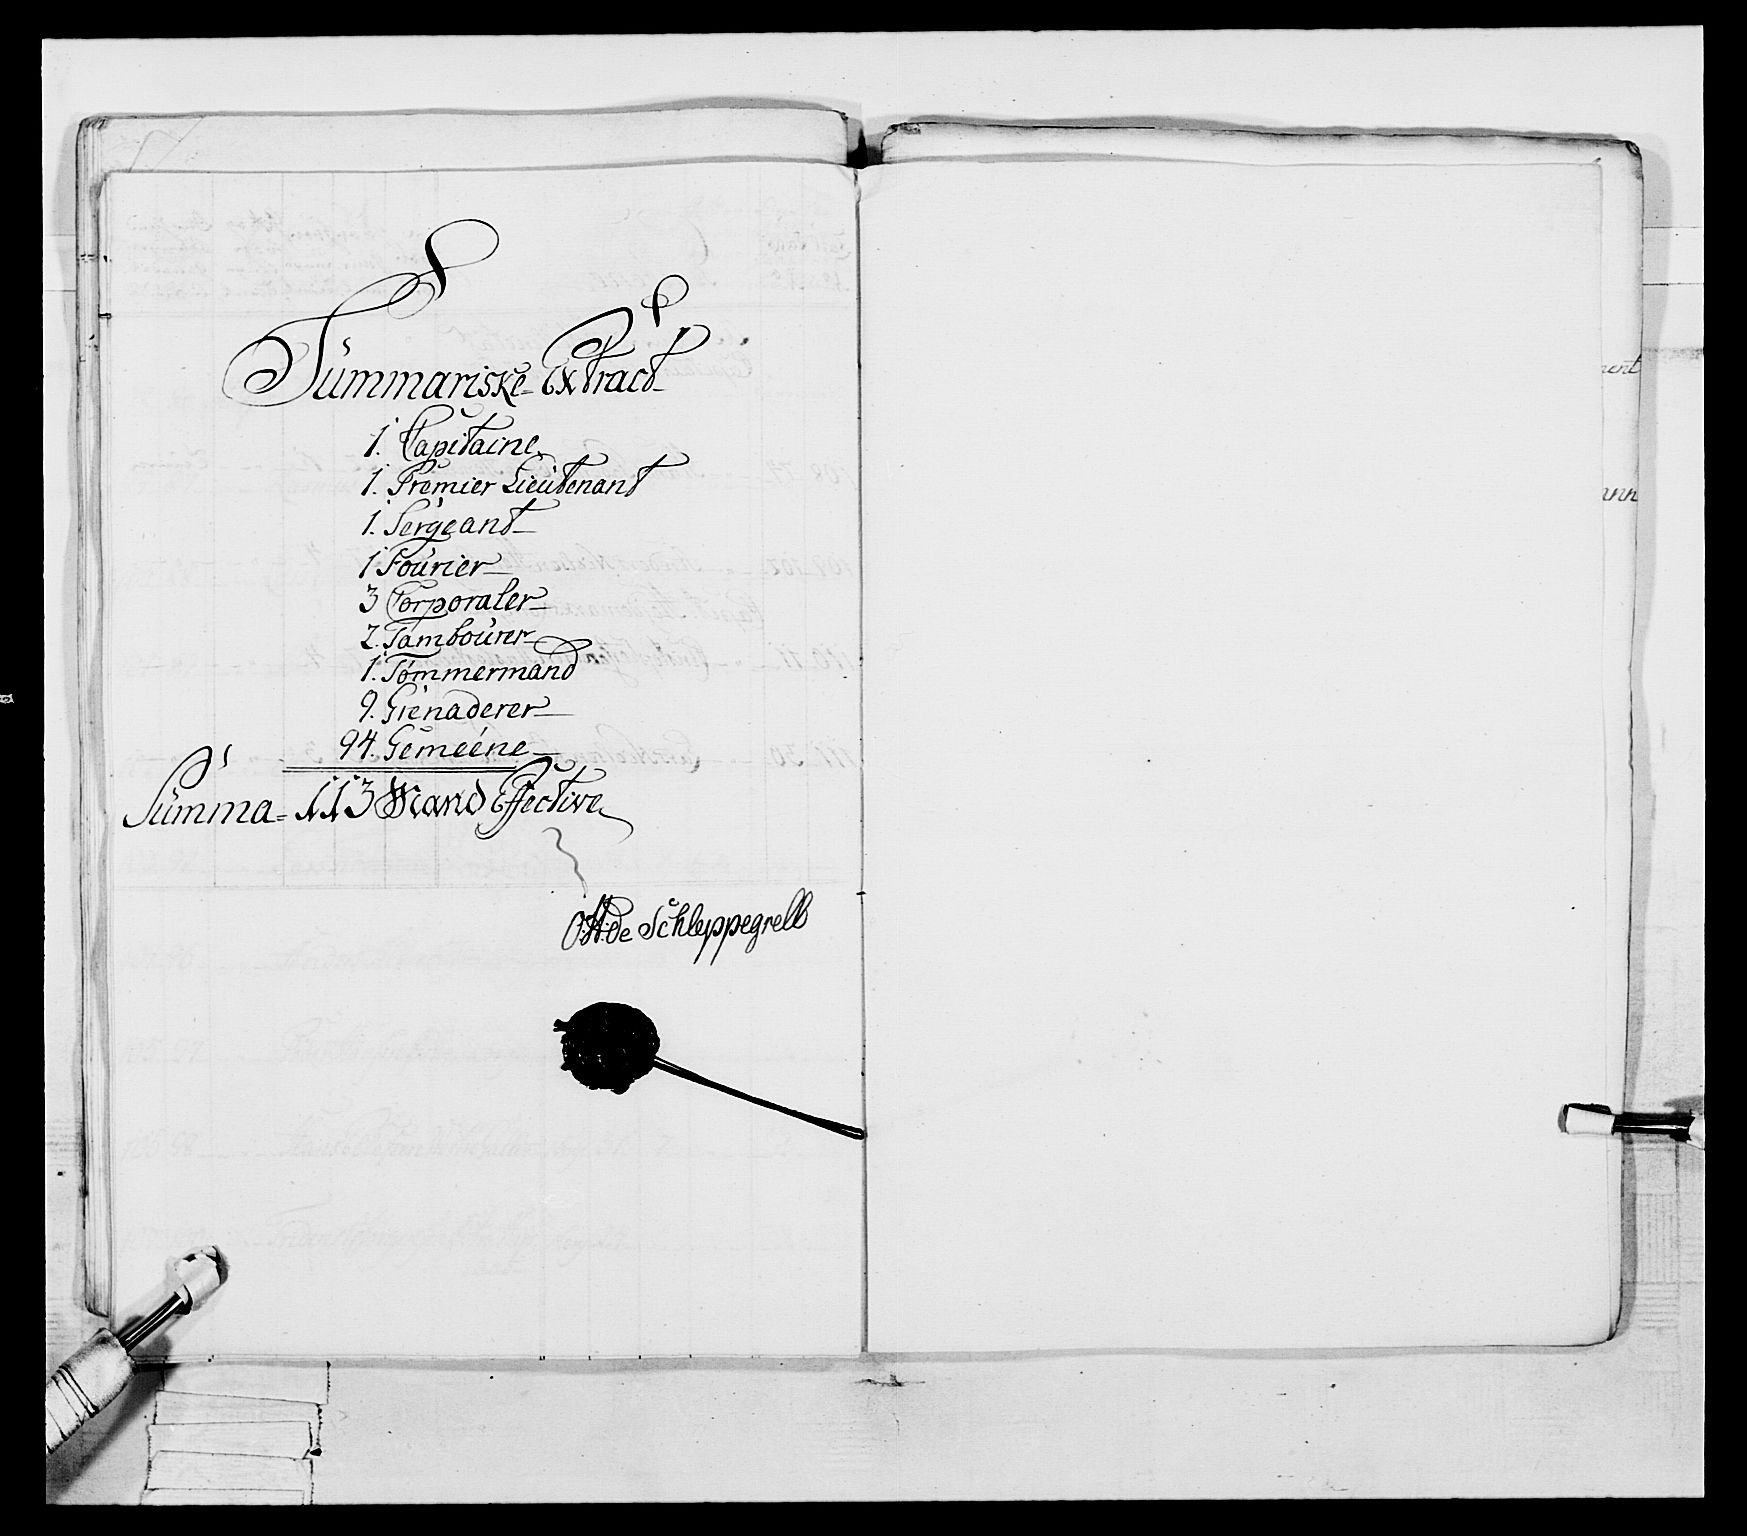 Summariske Extract
1. Capitaine
1. Premier Lieutenant
1. Sergeant
1 Fourier
3 Corporaler
2. Tambourer
1. Tømmermand
9. Grenaderer
94. Gemeene
Summa = 113 Mand Effective
de Schleppegrell